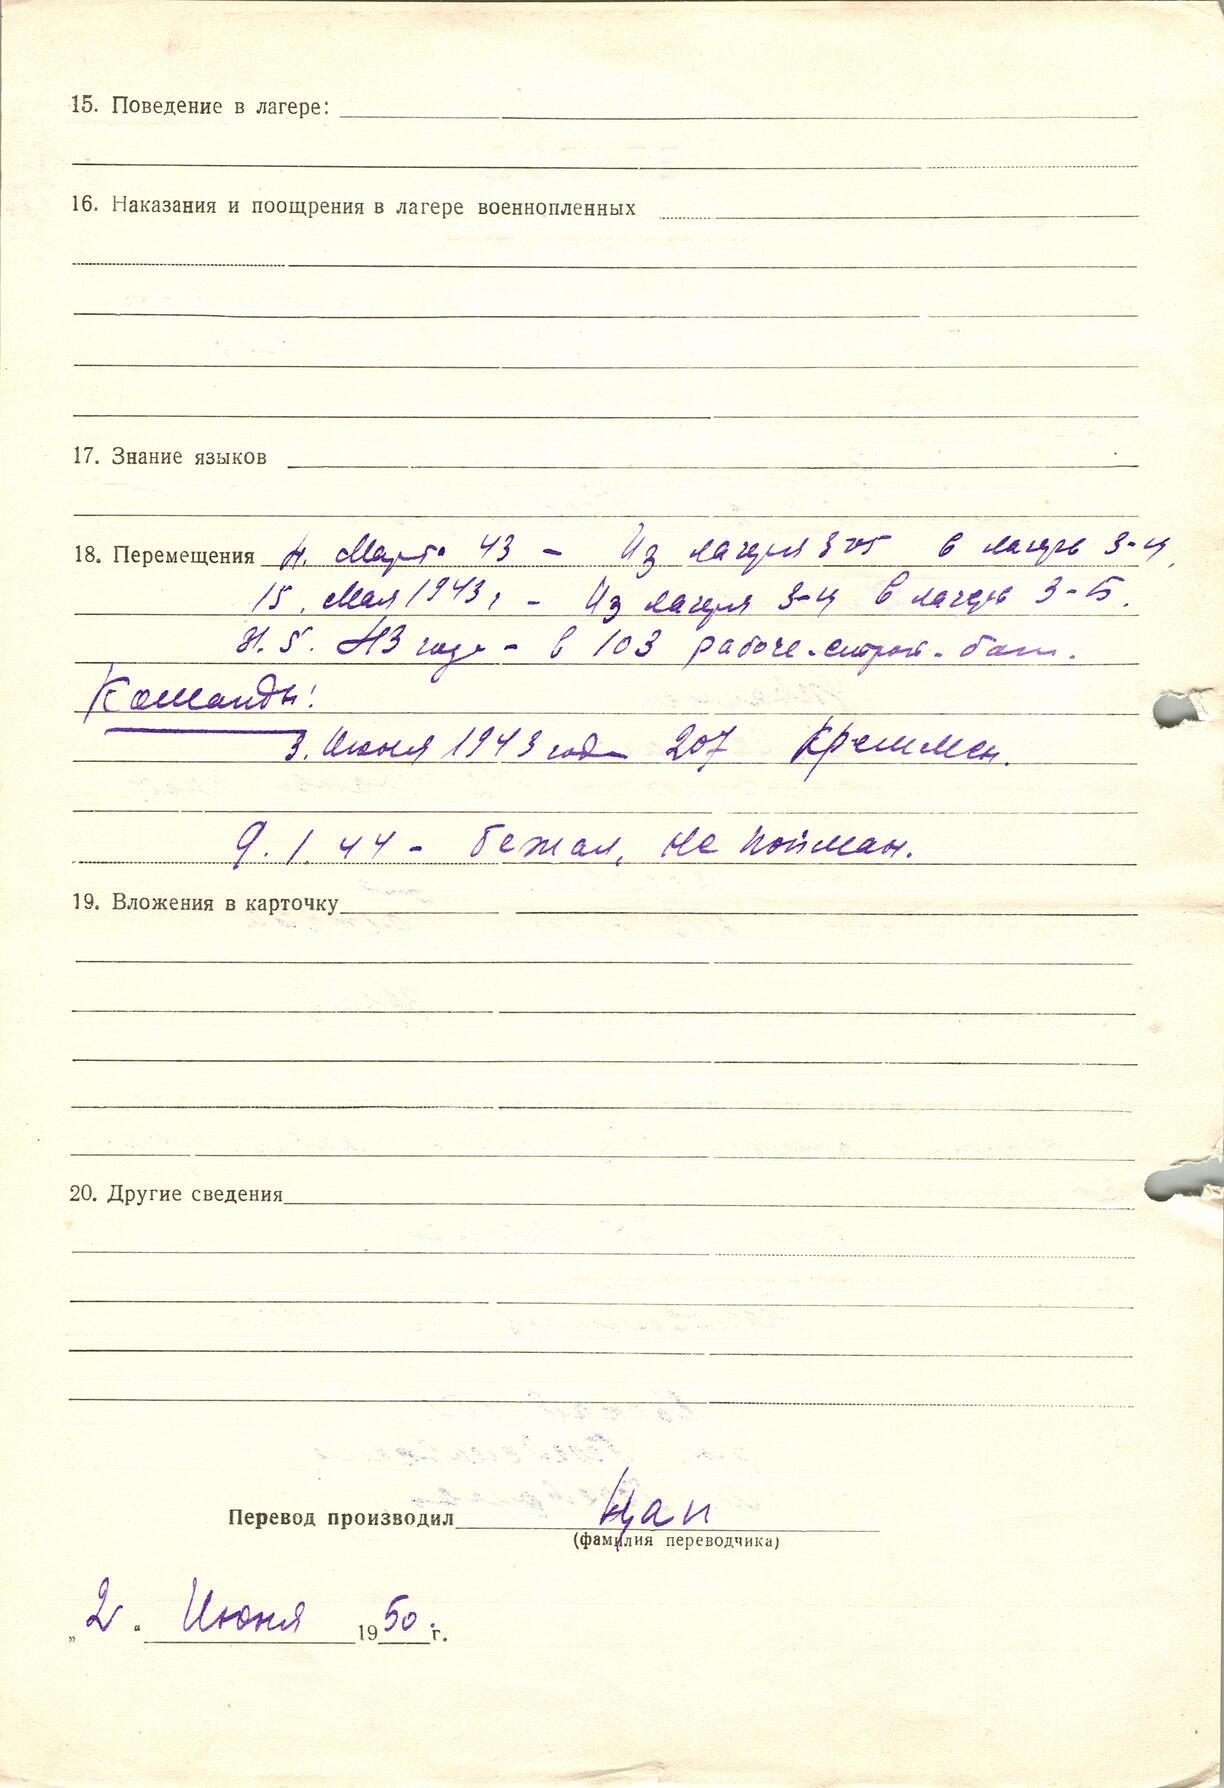 15. Поведение в лагере:
16. Наказания и поощрения в лагере военнопленных
17. Знание языков
18. Перемещения 4. Марта 43 - Из лагеря 305 в лагерь 3-Ц,
15. Мая 1943г - Из лагеря 3-Ц в лагерь 3-Б.
5. 43 года - в 103 рабоче-строит. бат.
Команды:
3. Июня 1943 года 207 Креммен.
9.1.44 - бежал, не пойман.
19. Вложения в карточку
20. Другие сведения
Перевод производил Цап
(фамилия переводчика)
„2“ Июня 1950 г.